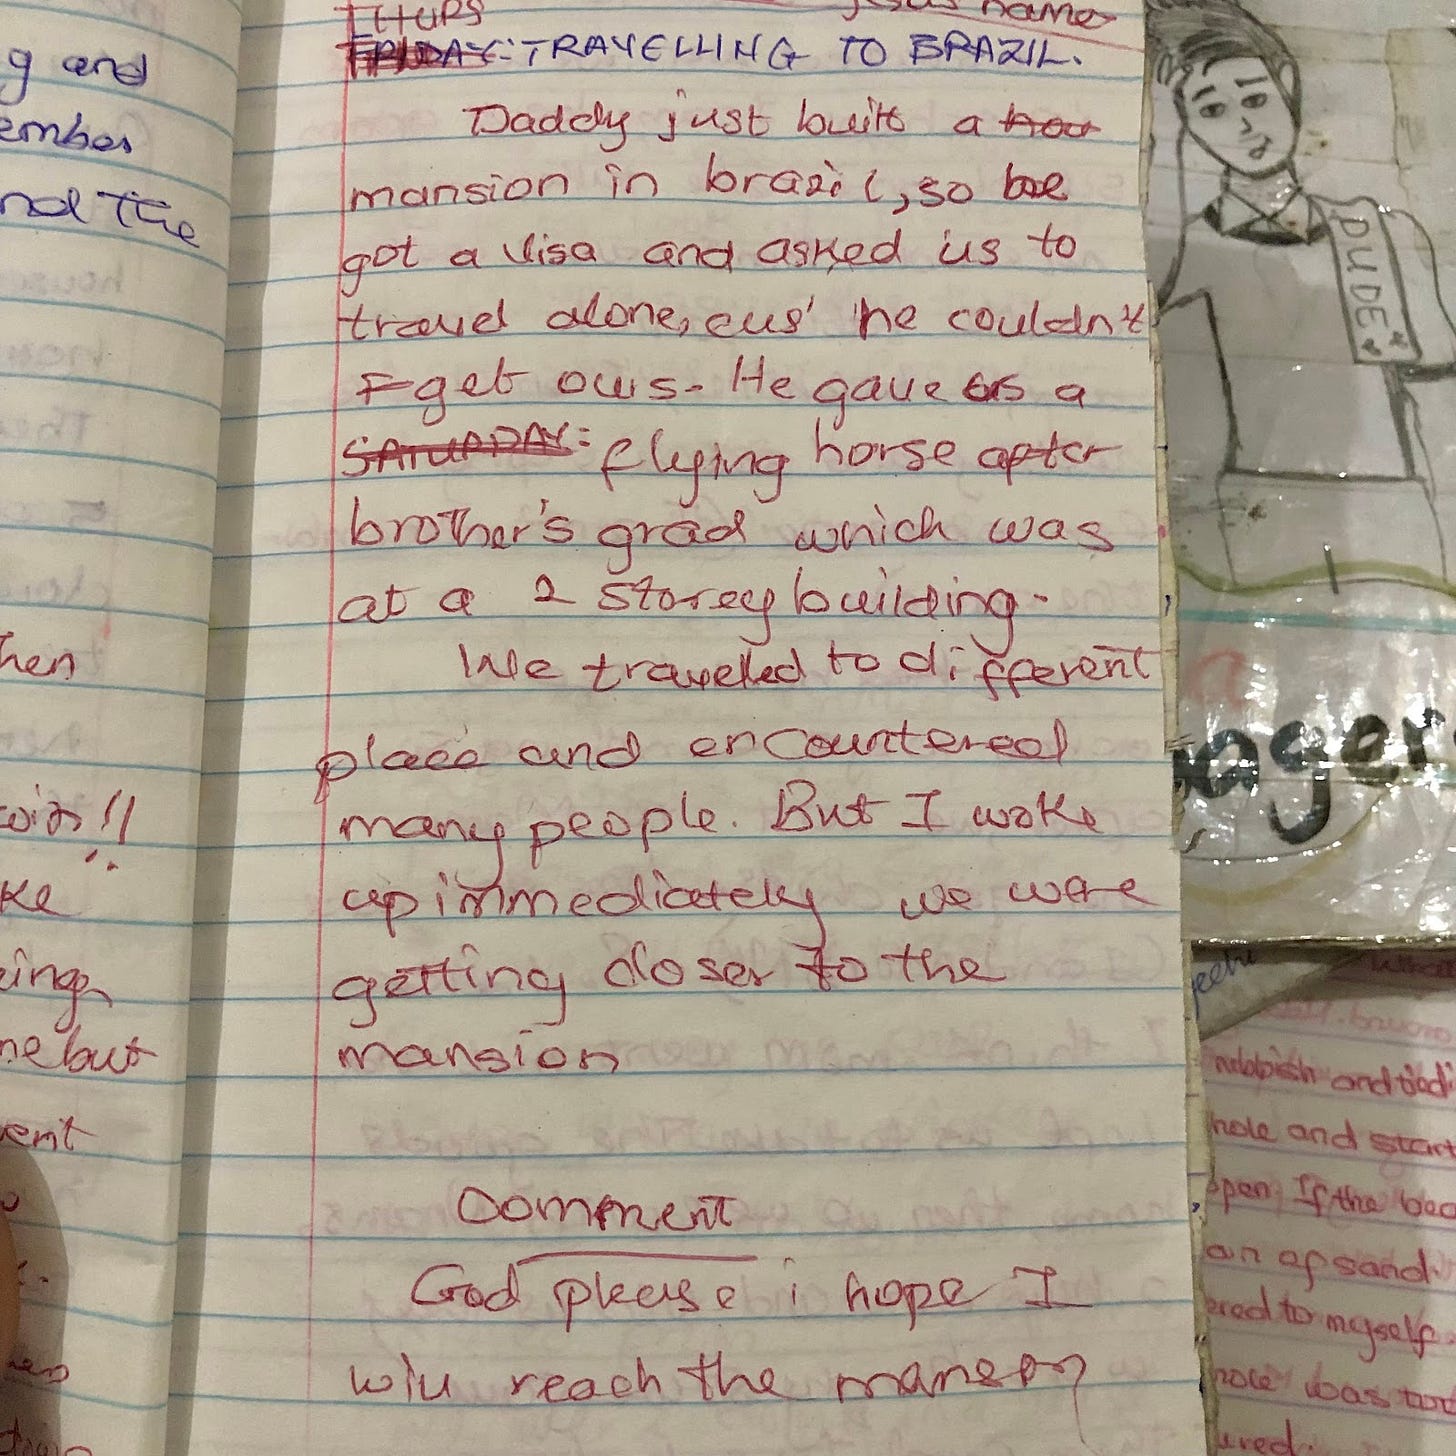 g and
ember
nd the
hen
ke
me but
ent
THURS
Jesus name
FRIDAY: TRAVELLING TO BRAZIL.
Daddy just built a hou
mansion in brazil, so he
got a visa and asked us to
travel alone, cus' he couldn't
get ours. He gave us a
SATURDAY: flying horse after
brother's grad which was
at a 2 storey building.
We travelled to different
place and encountered
many people. But I woke
up immediately we were
getting closer to the
mansion
Comment
God please i hope I
will reach the mansion
DUDE
ager
rubbish and
hole and start
open If the
an of sand
ered to myself.
hole was too
ured